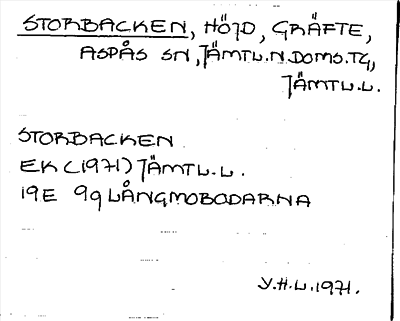 STORBACKEN, HÖJD, GRÄFTE,
ASPÅS SN, JÄMTL.N.DOMS.TG,
JÄMTL.L.
STORBACKEN
EK (1971) JÄMTL.L.
19E 9g LÅNGMOBODARNA
Y.H.L.1971.